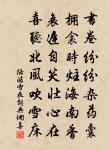 書卷紛紛雜藥囊
擁衾時炷海南香
衰遲自笑壯心在
喜聽北風吹雪床
陸游雪夜詞典網書